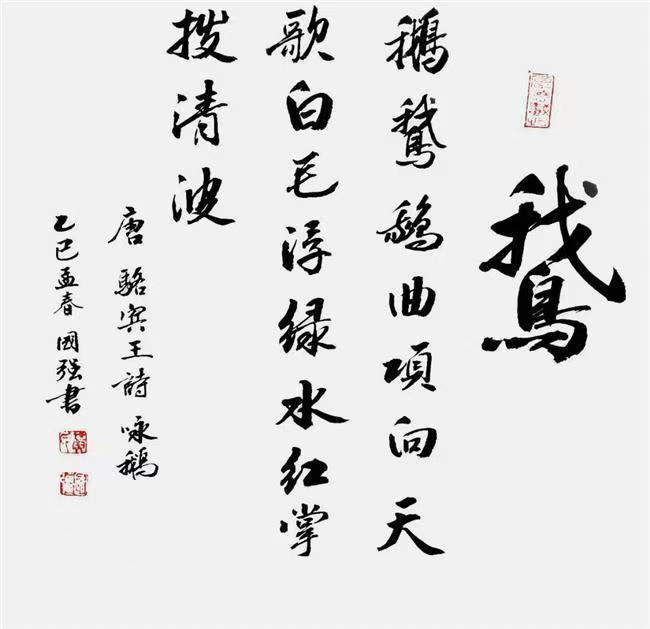 鵞
鵝鵞鵝曲項向天
歌白毛浮绿水红掌
拨清波
唐駱賓王詩咏鵝
乙巳孟春國强書